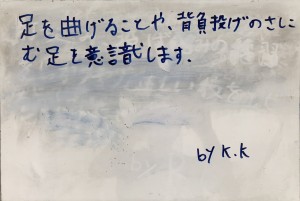 足を曲げることや、背負投げのさしこ
む足を意識します.
by K.K